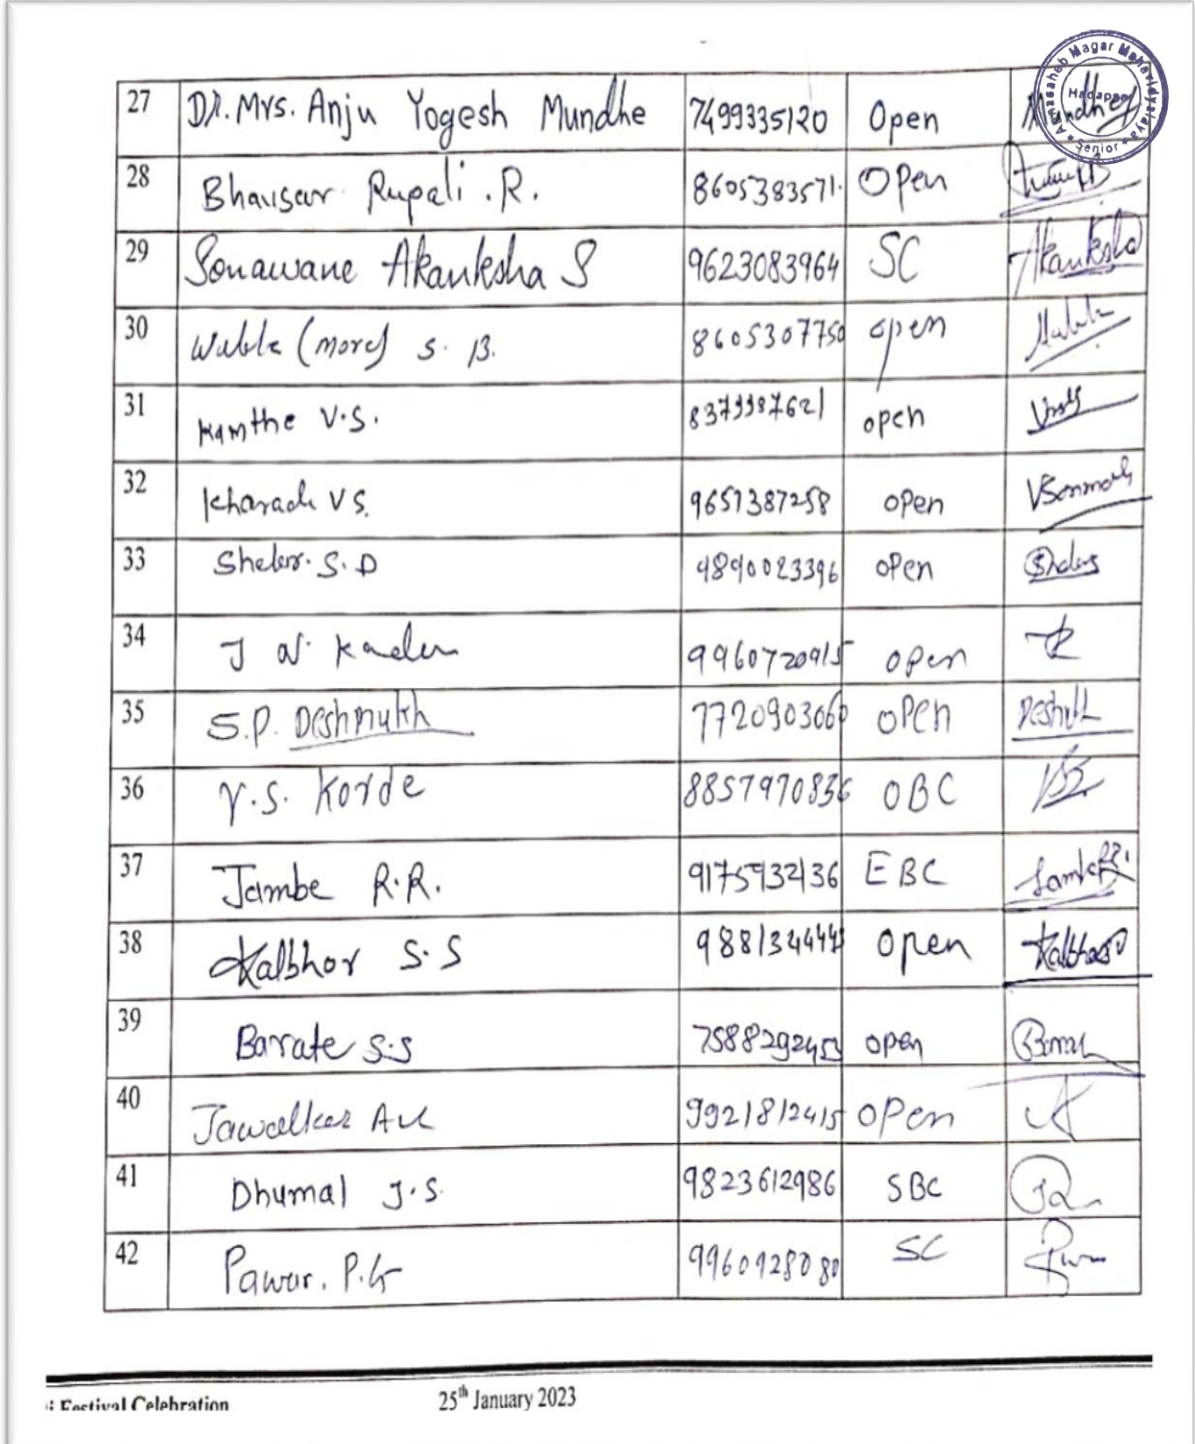 Annasaheb Magar Mahavidyalaya
Hadapsar
Senior
27 Dr. Mrs. Anju Yogesh Mundhe 7499335120 Open Mundhe
28 Bhavsar Rupali .R. 8605383571. Open
29 Sonawane Akanksha S 9623083964 SC Akanksha
30 (More) S. B. 8605307750 open
31 Kamthe V.S. 8379987621 open
32 Kharade V S. 9657387258 open
33 Sheler. S. D 9890023396 open
34 J N. 9960720915 open
35 S.P. Deshmukh 7720903060 open
36 V.S. Korde 8857970836 OBC
37 Jambe R.R. 9175932136 EBC
38 Kalbhor S.S 988134444 Open
39 Barate S.S 7588292453 open
40 Jawalkar A 9921812415 open
41 Dhumal J.S. 9823612986 SBC
42 Pawar. P.G 9960928080 SC
i Festival Celebration 25th January 2023